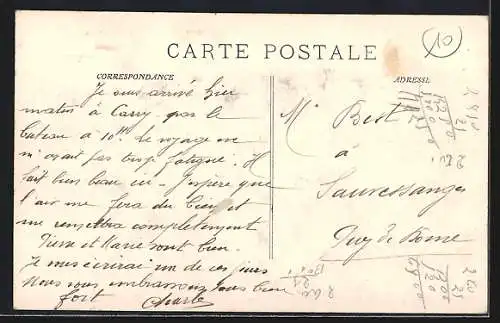 CARTE POSTALE
CORRESPONDANCE
ADRESSE
10
Je suis arrivé hier
matin à Carry par le
bateau à 10h. Le voyage ne
m'ayant pas trop fatigué. Il
fait bien beau ici - J'espère que
l'air me fera du bien et
me remettra complètement
Pierre et Marie sont bien.
Je vous écrirai un de ces jours
Nous vous embrassons tous bien
fort Charles
M. Best
à
Sauvessanges
Puy de Dôme